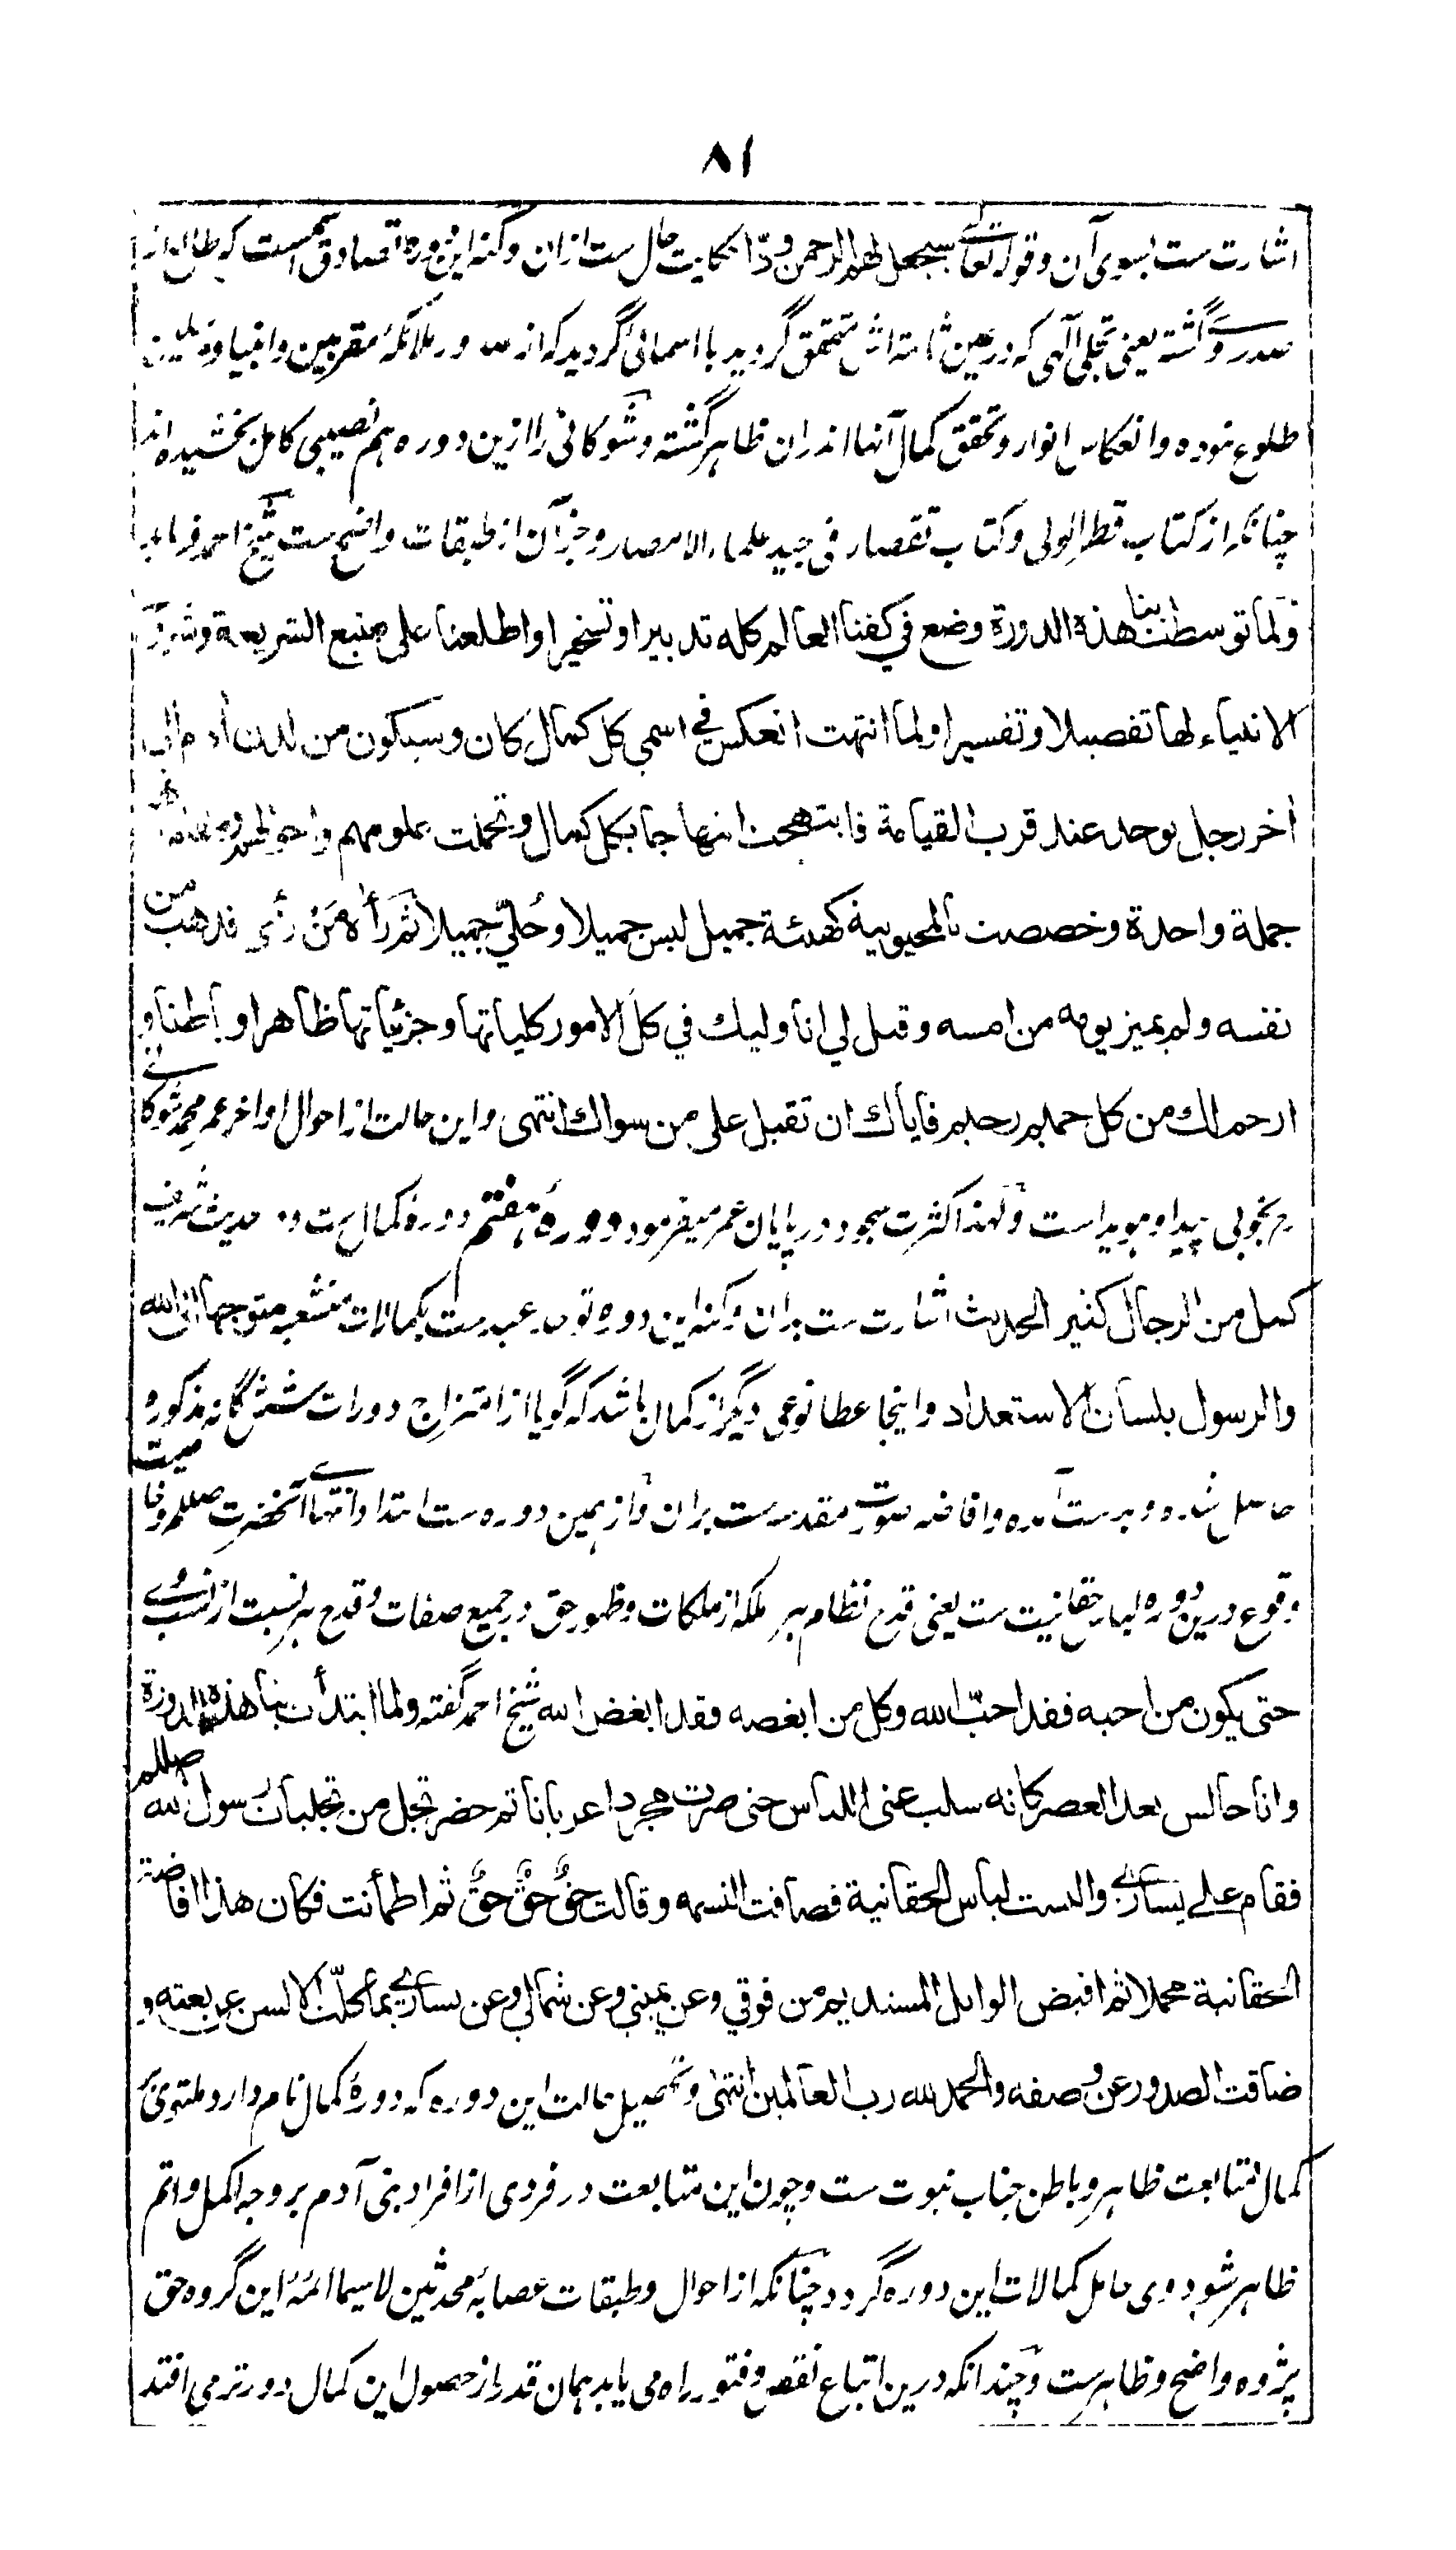 ۸۱
اشارت ست بسوی آن و قوله تعالی سیجعل لهم الرحمن ودّا حکایت حال ست از ان و کنه این دوره تصادق ست که طالع از
گشته یعنی تجلی آلهی که در عین ثابته اش متحقق گردید با اسمائی گردید که از صدور ملائکهٔ مقربین و انبیا و
طلوع نموده و انعکاس انوار و تحقق کمال آنها اندران ظاهر گشته و شوکانی را ازین دوره هم نصیبی کامل بخشیده اند
چنانکه از کتاب قطر الولی و کتاب تقصار فی جید علماء الامصار و جز آن از طبقات واضح ست شیخ احمد فرماید
ولما توسطت بنا هذه الدورة وضع فی کفنا العالم کله تدبیرا و تسخیرا و اطلعنا علی منبع الشریعة و
الانبیاء لها تفصیلا و تفسیرا ولما انتهت انعکس فی اسمی کل کمال کان و سیکون من لدن اٰدم الی
اٰخر رجل یوجد عند قرب القیامة فابتهجت ابتهاجا بکل کمال و تحملت بعلومهم
جملة واحدة و خصصت بالمحبوبیة کهیئة جمیل لبس جمیلا و حُلّی جمیلا ثم رأه من رأی فذهب من
نفسه ولم یمیز یومه من امسه و قیل لی انا ولیك فی کل الامور کلیاتها و جزئیاتها ظاهرا و باطنا و
ارحم لك من کل حلیم رحیم فایاك ان تقبل علی من سواك انتهی و این حالت از احوال اواخر عمر محمد شوکانی
بخوبی پیدا و هویداست و لهذا کثرت سجود در پایان عمر میفرمود دورهٔ هفتم دورهٔ کمال ست و حدیث شریف
کمل من الرجال کثیر الحدیث اشارت ست بدان و کنه این دوره عبد ست بکمالات منشعبه متوجها الی الله
والرسول بلسان الاستعداد و اینجا عطا نوعی دیگر از کمال باشد که گویا از امتزاج دورات ششگانه مذکوره
حاصل شده و بدست آمده و افاضه صورت مقدسه ست بران و از همین دوره ست ابتدا و انتهای آنحضرت صللم و خاتمیت
وقوع درین دوره لباس حقانیت ست یعنی قدح نظام هر ملکه از ملکات و ظهور حق در جمیع صفات و قدح هر نسبت از نسب وے
حتی یکون من احبه فقد احبّ الله و کل من ابغضه فقد ابغض الله شیخ احمد گفته ولما ابتدأت بنا هذه الدورة
وانا جالس بعد العصر کانه سلب عنی اللباس حتی صرت مجردا عریانا ثم حضر تجل من تجلیات رسول الله صللم
فقام علی یساری والبست لباس الحقانیة فصافت النسمه وقالت حقٌ حقٌ حقٌ ثم اطمأنت فکان هذا افاضة
الحقانیة مجملا ثم افیض الوابل المستدیم من فوقی وعن یمینی وعن شمالی وعن یساری بما کلّت الالسن عن نعته و
ضاقت الصدور عن وصفه والحمد لله رب العالمین انتهی و تحصیل حالت این دوره که دورهٔ کمال نام دارد
کمال متابعت ظاهر و باطن جناب نبوت ست و چون این متابعت در فردی از افراد بنی آدم بر وجه اکمل و اتم
ظاهر شود وی حامل کمالات این دوره گردد چنانکه از احوال و طبقات عصابهٔ محدثین لاسیما ائمهٔ این گروه حق
پژوه واضح و ظاهر ست و چندانکه درین اتباع نقص و فتور راه می یابد همان قدر از حصول این کمال دورتر می افتد